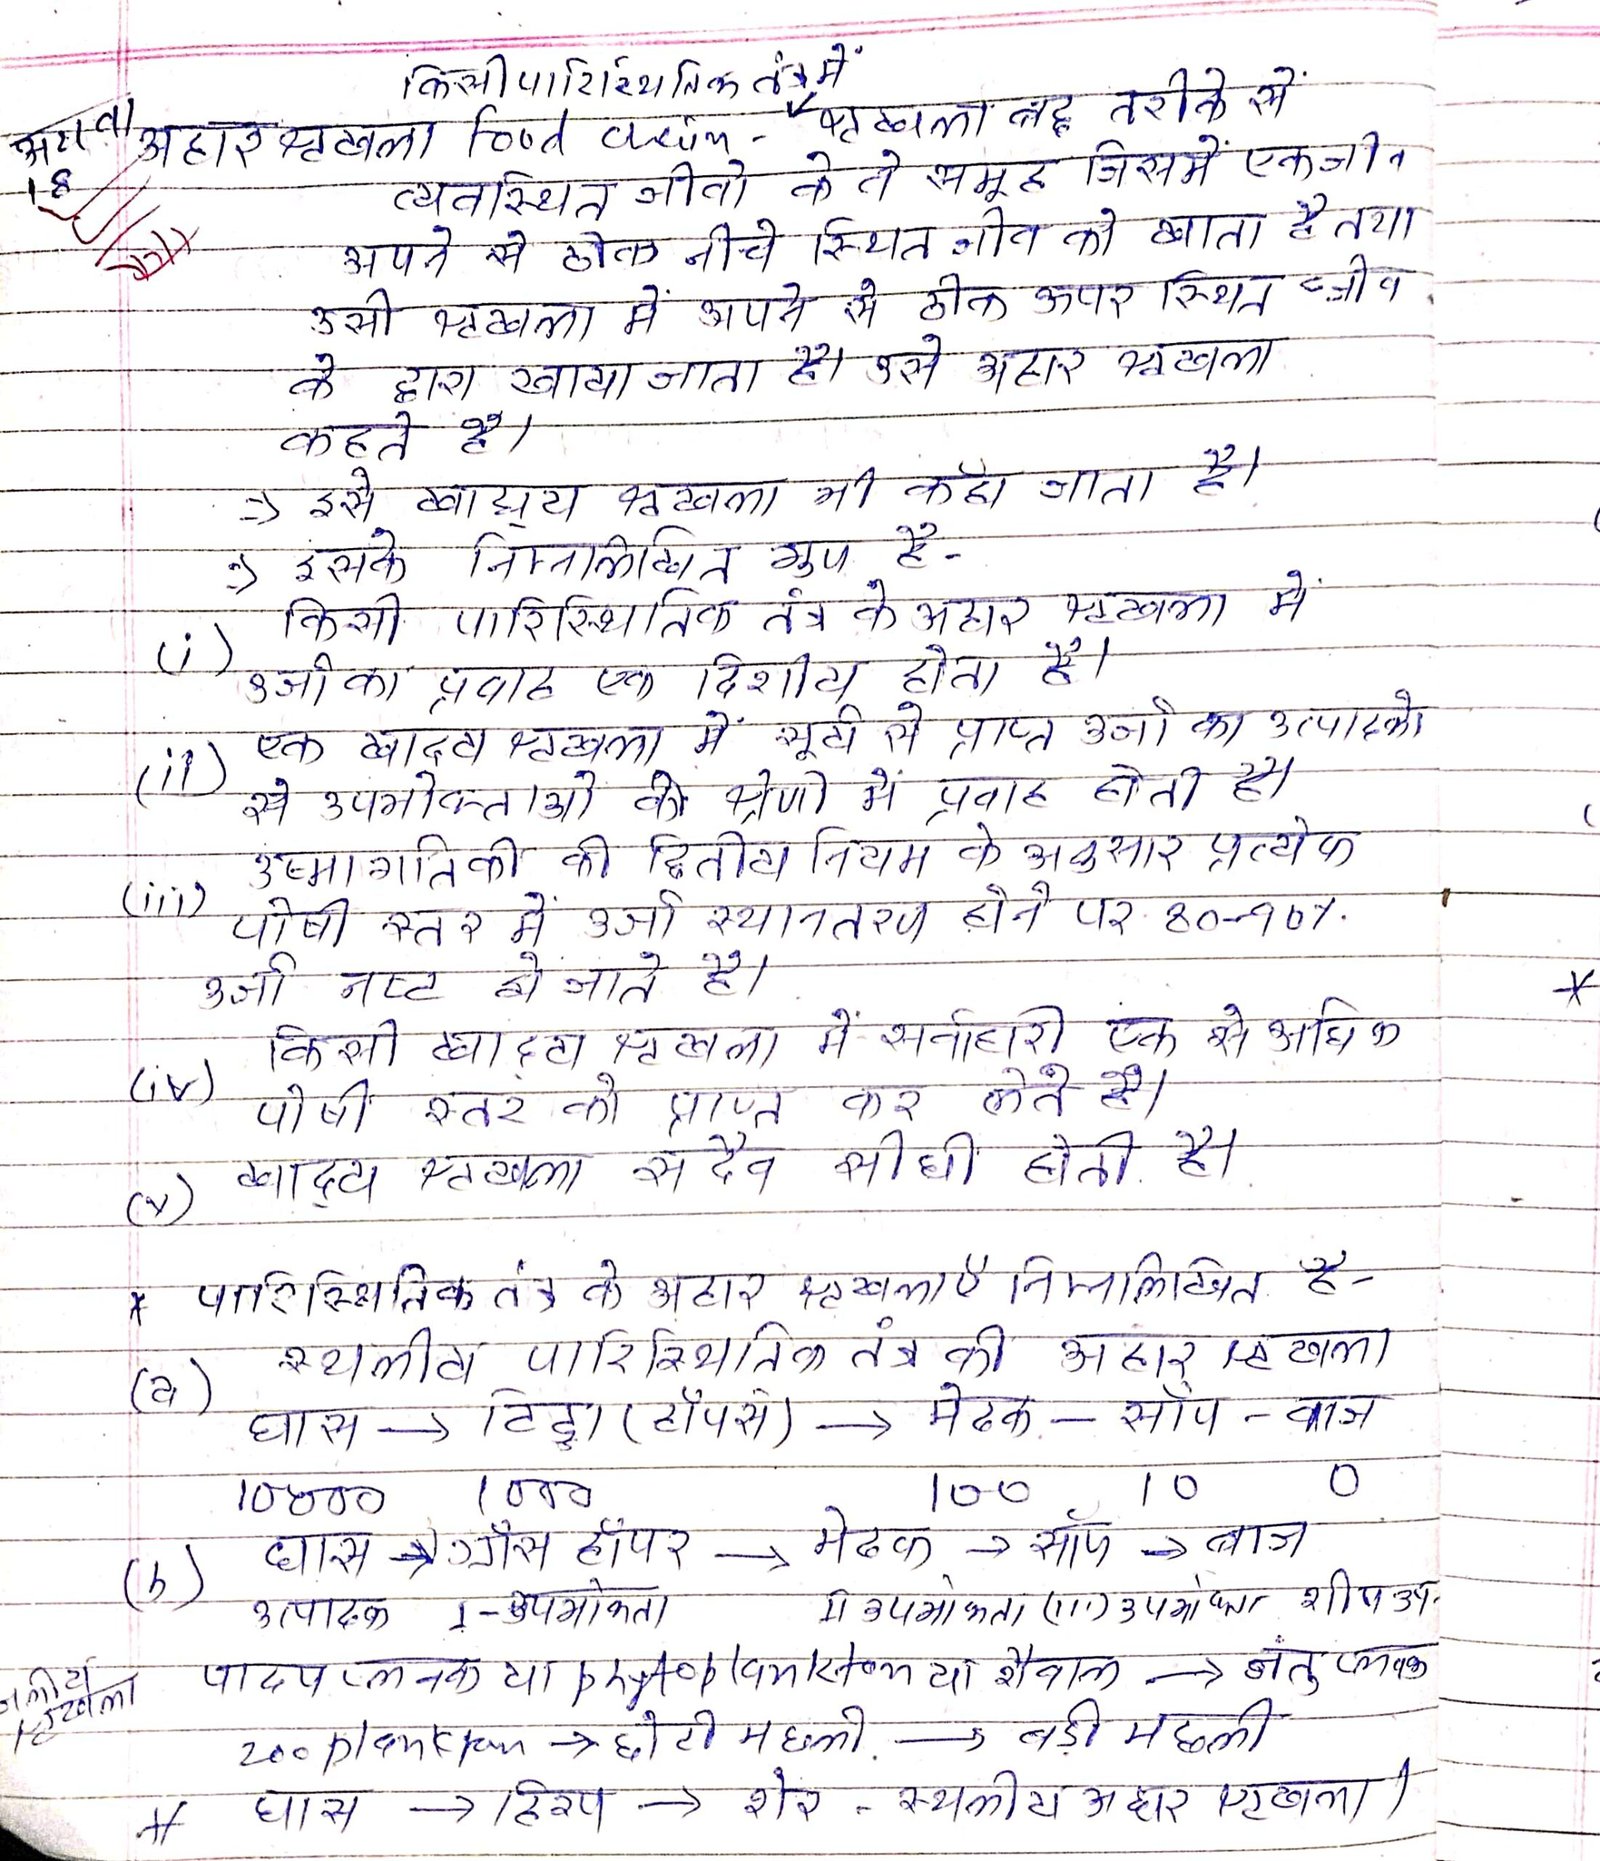 किसी पारिस्थितिक तंत्र में
अहार श्रृखला food chain - श्रृखला बद्ध तरीके से
18
व्यवस्थित जीवो के वे समूह जिसमें एक जीव
अपने से ठीक नीचे स्थित जीव को खाता है तथा
उसी श्रृखला में अपने से ठीक ऊपर स्थित जीव
के द्वारा खाया जाता है। उसे अहार श्रृखला
कहते है।
⇒ इसे खाद्य श्रृखला भी कहाँ जाता है।
⇒ इसके निम्नलिखित गुण है -
(i) किसी पारिस्थितिक तंत्र के अहार श्रृखला में
उर्जा का प्रवाह एक दिशीय होता है।
(ii) एक खादय श्रृखला में सूर्य से प्राप्त उर्जा का उत्पादको
से उपभोक्ताओ की श्रेणी में प्रवाह होती है।
(iii) उष्मागतिकी की द्वितीय नियम के अनुसार प्रत्येक
पोषी स्तर में उर्जा स्थानतरण होने पर 80-90%.
उर्जा नष्ट हो जाते है।
(iv) किसी खाद्य श्रृखला में सर्वाहारी एक से अधिक
पोषी स्तर को प्राप्त कर लेते है।
(v) खाद्य श्रृखला सदैव सीधी होती है।
* पारिस्थितिक तंत्र के अहार श्रृखलाएँ निम्नलिखित है -
(a) स्थलीय पारिस्थितिक तंत्र की अहार श्रृखला
घास → टिड्डा (टॉपर्स) → मेढक - साँप - बाज
10000 1000 100 10 0
(b) घास → ग्रास हॉपर → मेढक → साँप → बाज
उत्पादक I-उपभोक्ता II उपभोक्ता (III) उपभोक्ता शीर्ष उप.
जलीय श्रृखला
पादप प्लवक या phytoplankton या शैवाल → जंतु प्लवक
zooplankton → छोटी मछली. → बड़ी मछली
* घास → हिरण → शेर - स्थलीय अहार श्रृखला।